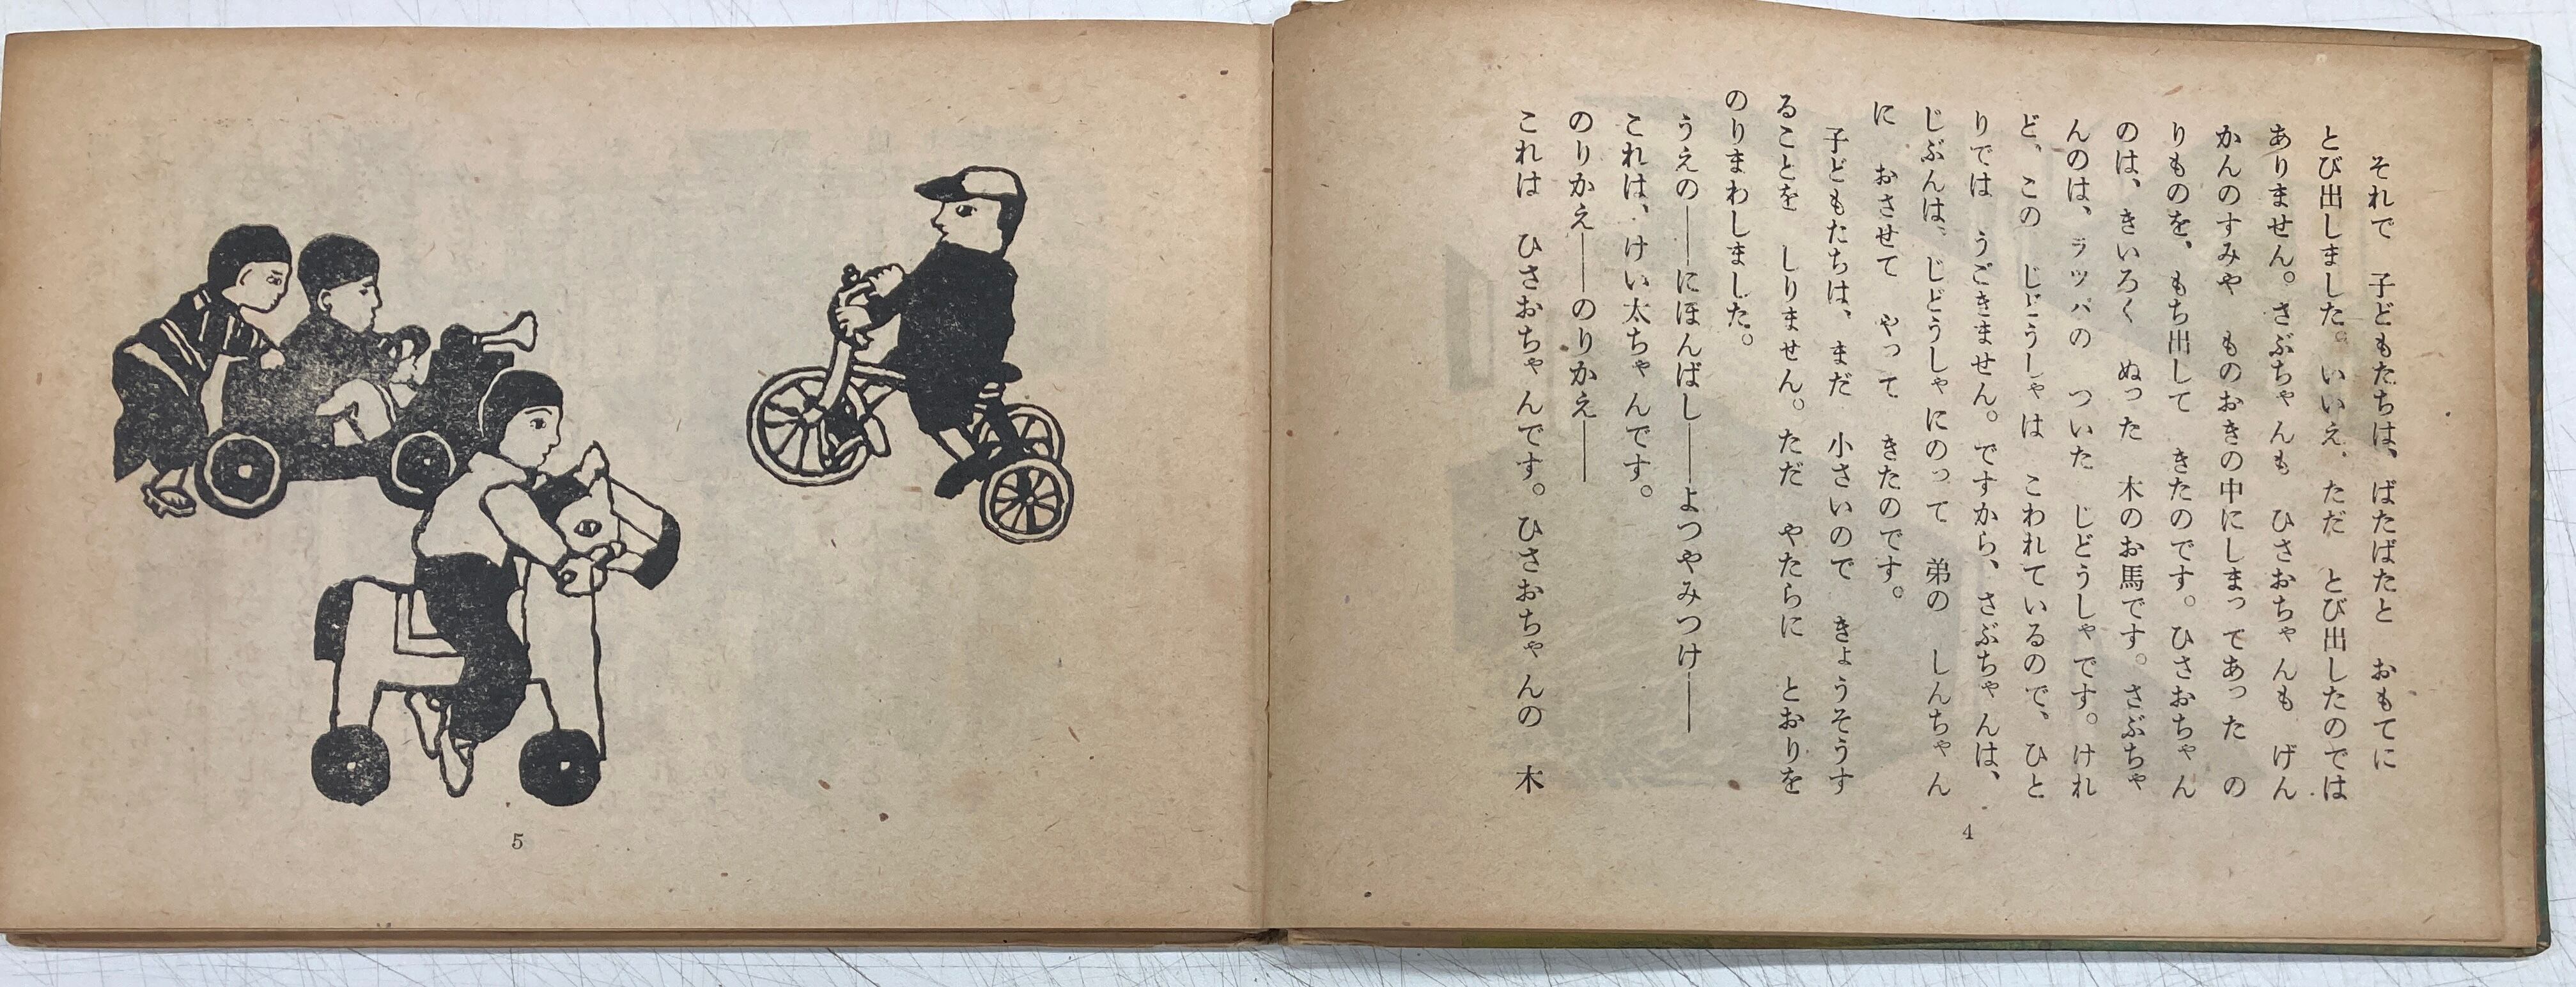 それで　子どもたちは、ばたばたと　おもてに
とび出しました。いいえ、ただ　とび出したのでは
ありません。さぶちゃんも　ひさおちゃんも　げん
かんのすみや　ものおきの中にしまってあった　の
りものを、もち出して　きたのです。ひさおちゃん
のは、きいろく　ぬった　木のお馬です。さぶちゃ
んのは、ラッパの　ついた　じどうしゃです。けれ
ど、この　じどうしゃは　こわれているので、ひと
りでは　うごきません。ですから、さぶちゃんは、
じぶんは、じどうしゃにのって　弟の　しんちゃん
に　おさせて　やって　きたのです。
子どもたちは、まだ　小さいので　きょうそうす
ることを　しりません。ただ　やたらに　とおりを
のりまわしました。
うえの――にほんばし――よつやみつけ――
これは、けい太ちゃんです。
のりかえ――のりかえ――
これは　ひさおちゃんです。ひさおちゃんの　木
4
5